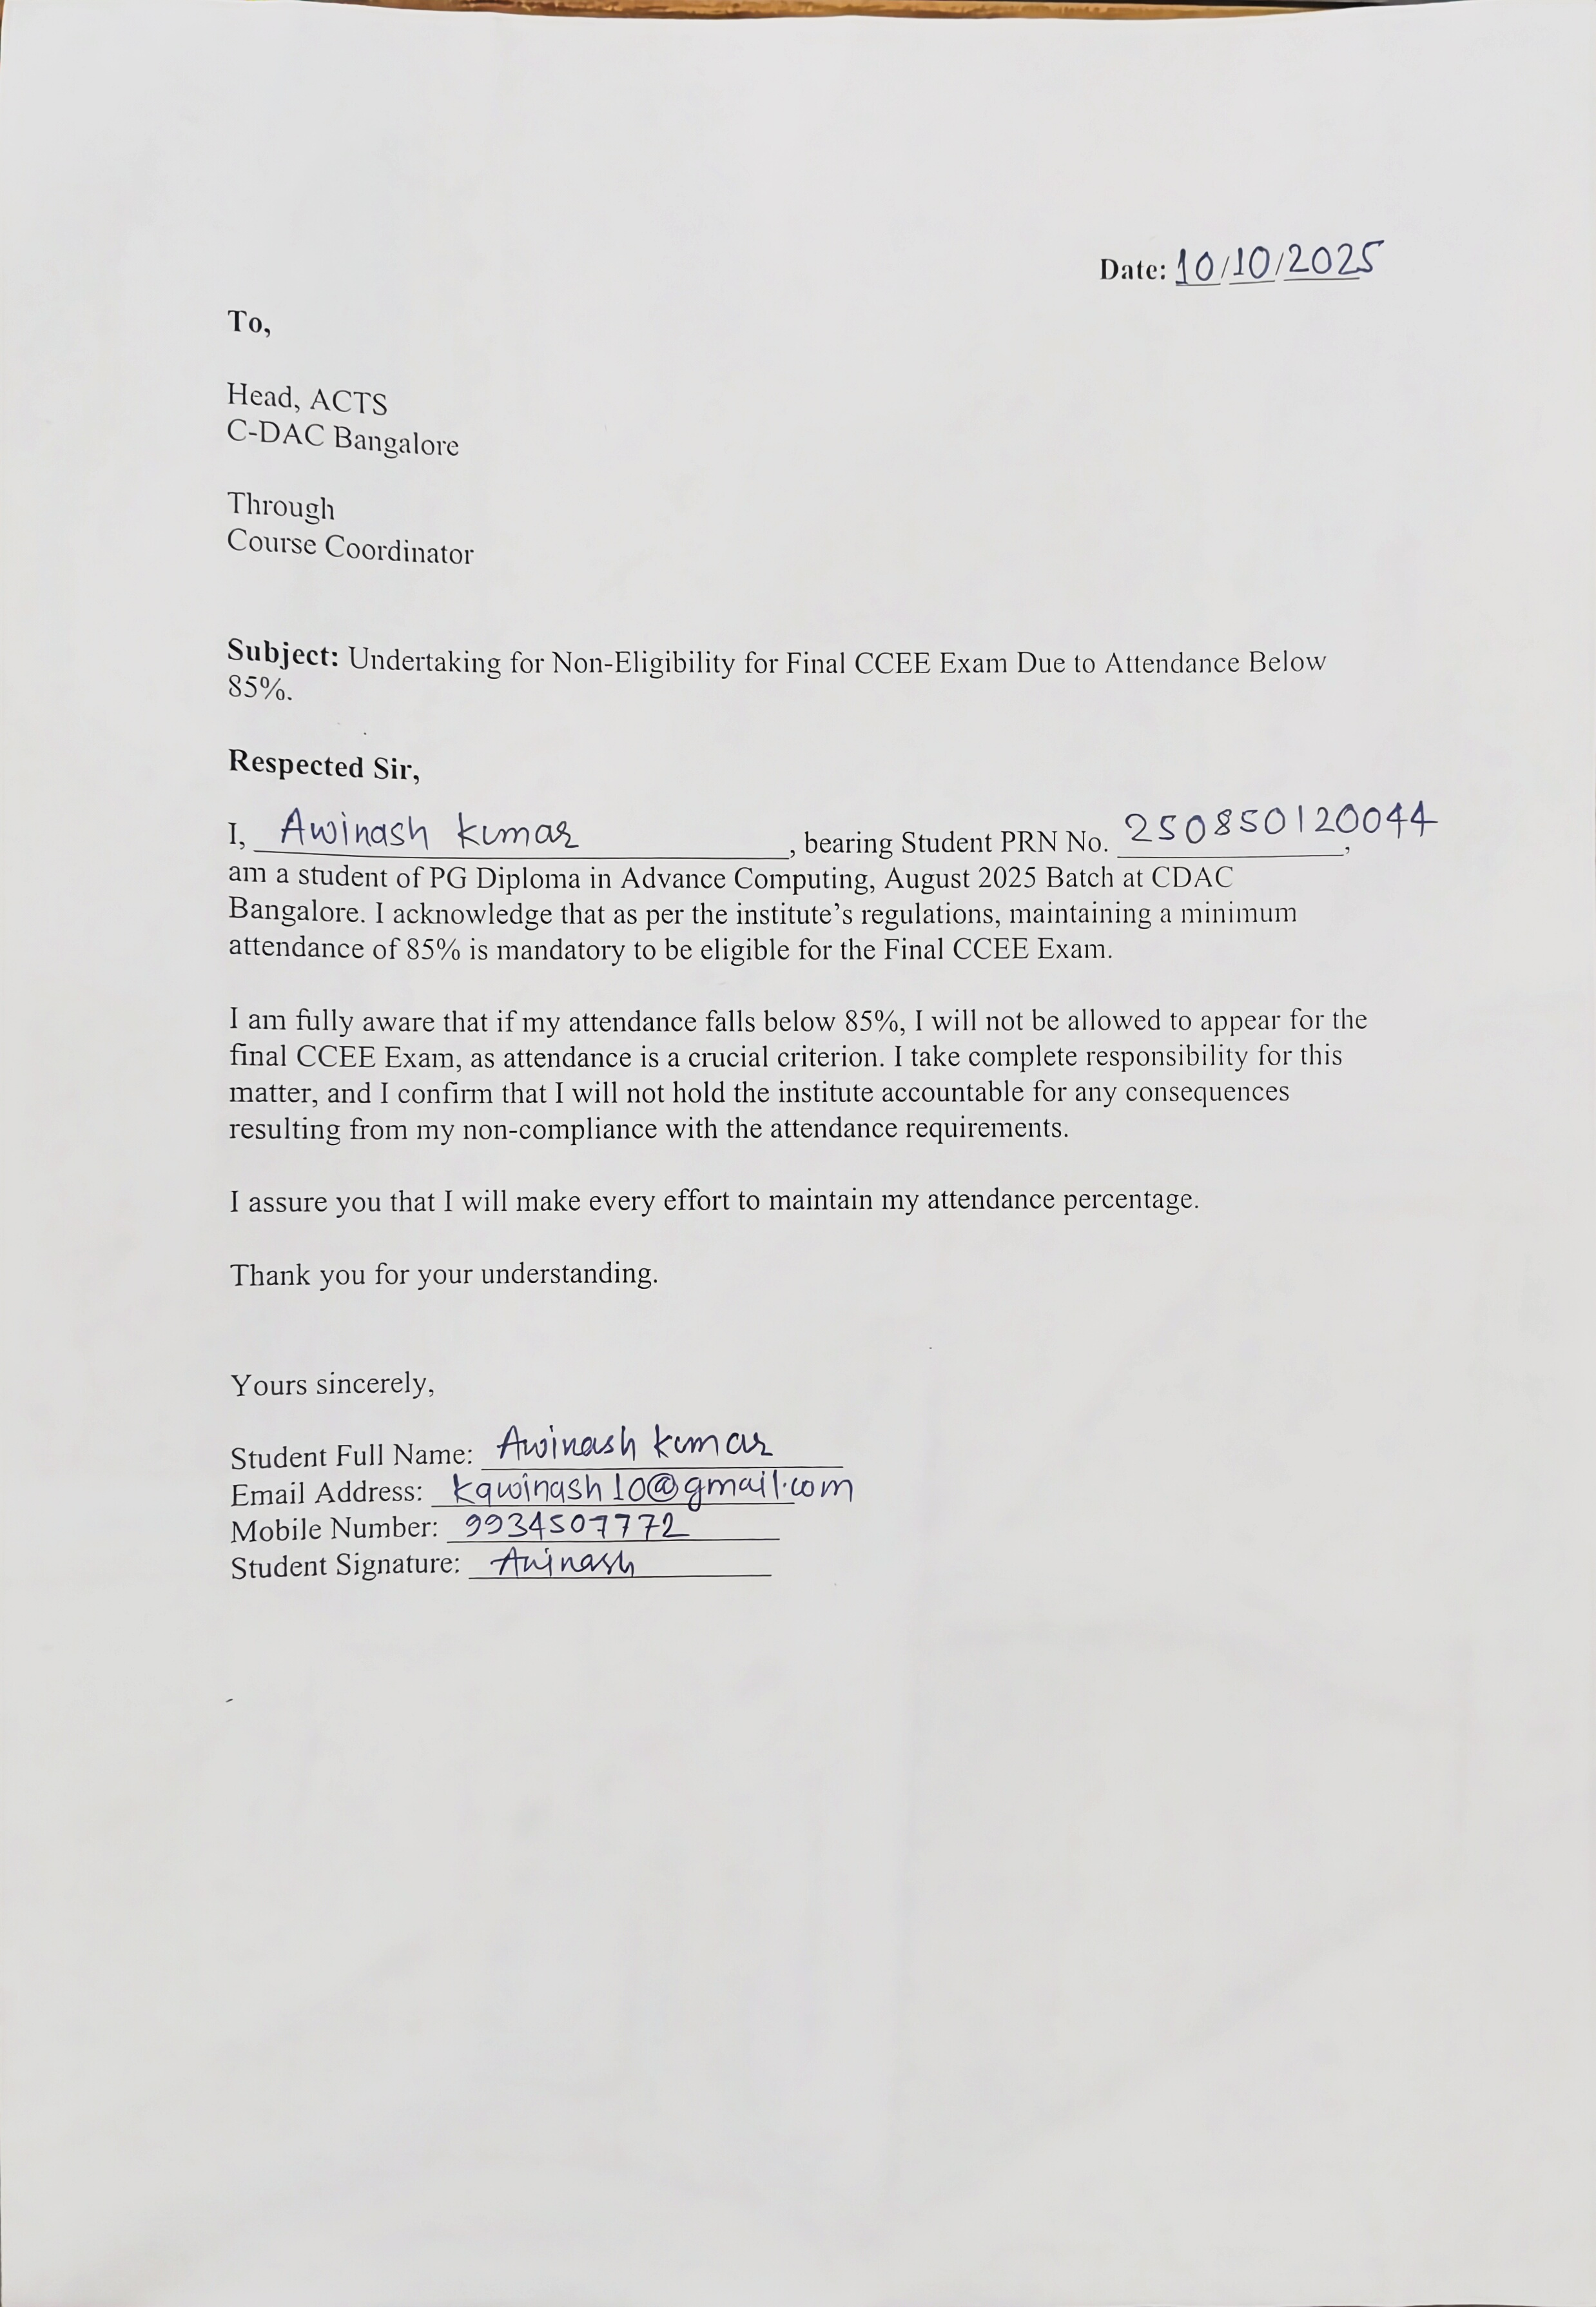 Date: 10/10/2025
To,
Head, ACTS
C-DAC Bangalore
Through
Course Coordinator
Subject: Undertaking for Non-Eligibility for Final CCEE Exam Due to Attendance Below
85%.
Respected Sir,
I, Awinash kumar, bearing Student PRN No. 250850120044,
am a student of PG Diploma in Advance Computing, August 2025 Batch at CDAC
Bangalore. I acknowledge that as per the institute's regulations, maintaining a minimum
attendance of 85% is mandatory to be eligible for the Final CCEE Exam.
I am fully aware that if my attendance falls below 85%, I will not be allowed to appear for the
final CCEE Exam, as attendance is a crucial criterion. I take complete responsibility for this
matter, and I confirm that I will not hold the institute accountable for any consequences
resulting from my non-compliance with the attendance requirements.
I assure you that I will make every effort to maintain my attendance percentage.
Thank you for your understanding.
Yours sincerely,
Student Full Name: Awinash kumar
Email Address: kawinash10@gmail.com
Mobile Number: 9934507772
Student Signature: Awinash